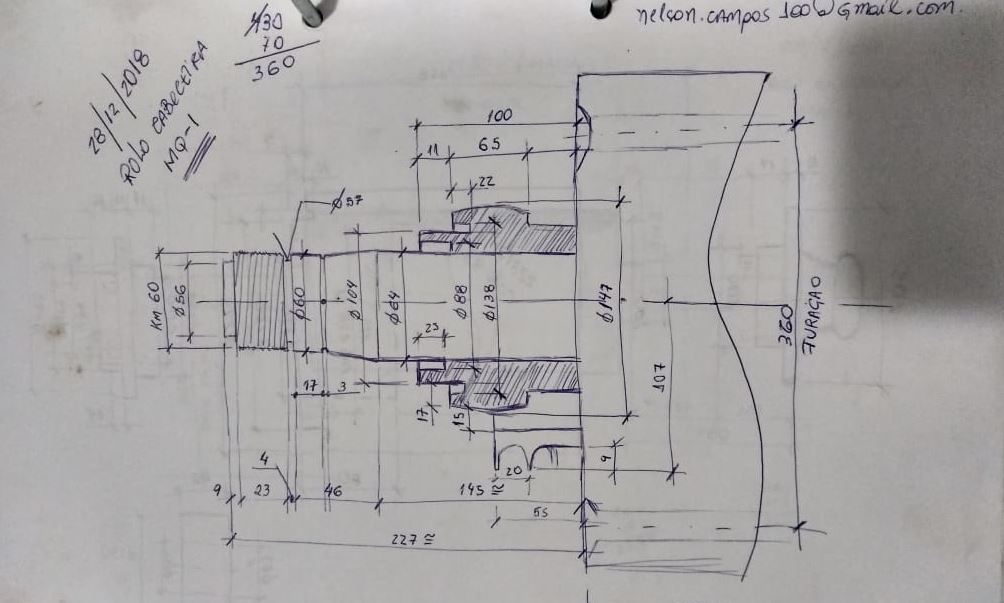 nelson.campos100@Gmail.com.
430
70
360
28/12/2018
ROLO CABECEIRA
MQ-1
100
11
65
22
Ø57
KM 60
Ø56
Ø60
Ø104
Ø64
Ø88
Ø138
Ø147
360
FURAÇÃO
23
107
17
3
17
15
20
9
4
9
23
46
145 ≅
55
227 ≅